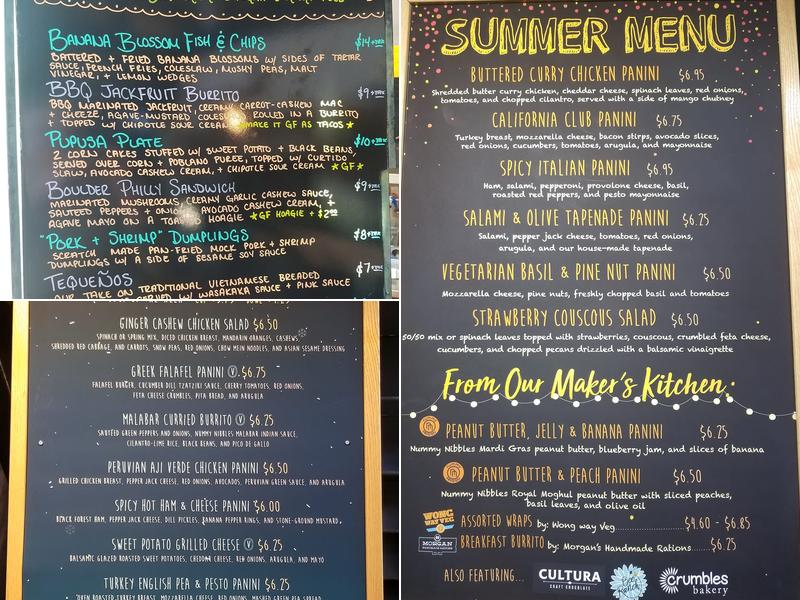 BANANA BLOSSOM FISH & CHIPS $14+TAX
BATTERED + FRIED BANANA BLOSSOMS W/ SIDES OF TARTAR
SAUCE, FRENCH FRIES, COLESLAW, MUSHY PEAS, MALT
VINEGAR, + LEMON WEDGES
BBQ JACKFRUIT BURRITO $9+TAX
BBQ MARINATED JACKFRUIT, CREAMY CARROT-CASHEW MAC
+ CHEEZE, AGAVE-MUSTARD COLESLAW ROLLED IN A BURRITO
+ TOPPED W/ CHIPOTLE SOUR CREAM MAKE IT GF AS TACOS
PUPUSA PLATE $10+TAX
2 CORN CAKES STUFFED W/ SWEET POTATO + BLACK BEANS,
SERVED OVER CORN + POBLANO PUREE, TOPPED W/ CURTIDO
SLAW, AVOCADO CASHEW CREAM, + CHIPOTLE SOUR CREAM *GF*
BOULDER PHILLY SANDWICH $9+TAX
MARINATED MUSHROOMS, CREAMY GARLIC CASHEW SAUCE,
SAUTEED PEPPERS + ONIONS, AVOCADO CASHEW CREAM, +
AGAVE MAYO ON A TOASTED HOAGIE *GF HOAGIE + $2.00
"PORK + SHRIMP" DUMPLINGS $8+TAX
SCRATCH MADE PAN-FRIED MOCK PORK + SHRIMP
DUMPLINGS W/ A SIDE OF SESAME SOY SAUCE
TEQUEÑOS $7+TAX
OUR TAKE ON TRADITIONAL VIETNAMESE BREADED
SERVED W/ WASAKAKA SAUCE + PINK SAUCE
GINGER CASHEW CHICKEN SALAD $6.50
SPINACH OR SPRING MIX, DICED CHICKEN BREAST, MANDARIN ORANGES, CASHEWS,
SHREDDED RED CABBAGE, AND CARROTS, SNOW PEAS, RED ONIONS, CHOW MEIN NOODLES, AND ASIAN SESAME DRESSING
GREEK FALAFEL PANINI V $6.75
FALAFEL BURGER, CUCUMBER DILL TZATZIKI SAUCE, CHERRY TOMATOES, RED ONIONS,
FETA CHEESE CRUMBLES, PITA BREAD, AND ARUGULA
MALABAR CURRIED BURRITO V $6.75
SAUTÉED GREEN PEPPERS AND ONIONS, NUMMY NIBBLES MALABAR INDIAN SAUCE,
CILANTRO-LIME RICE, BLACK BEANS, AND PICO DE GALLO
PERUVIAN AJI VERDE CHICKEN PANINI $6.50
GRILLED CHICKEN BREAST, PEPPER JACK CHEESE, RED ONIONS, AVOCADOS, PERUVIAN GREEN SAUCE, AND ARUGULA
SPICY HOT HAM & CHEESE PANINI $6.00
BLACK FOREST HAM, PEPPER JACK CHEESE, DILL PICKLES, BANANA PEPPER RINGS, AND STONE-GROUND MUSTARD
SWEET POTATO GRILLED CHEESE V $6.25
BALSAMIC GLAZED ROASTED SWEET POTATOES, CHEDDAR CHEESE, RED ONIONS, ARUGULA, AND MAYO
TURKEY ENGLISH PEA & PESTO PANINI $6.25
OVEN ROASTED TURKEY BREAST, MOZZARELLA CHEESE, RED ONIONS, MASHED GREEN PEA SPREAD
SUMMER MENU
BUTTERED CURRY CHICKEN PANINI $6.95
Shredded butter curry chicken, cheddar cheese, spinach leaves, red onions,
tomatoes, and chopped cilantro, served with a side of mango chutney
CALIFORNIA CLUB PANINI $6.75
Turkey breast, mozzarella cheese, bacon stirps, avocado slices,
red onions, cucumbers, tomatoes, arugula, and mayonnaise
SPICY ITALIAN PANINI $6.95
Ham, salami, pepperoni, provolone cheese, basil,
roasted red peppers, and pesto mayonnaise
SALAMI & OLIVE TAPENADE PANINI $6.25
Salami, pepper jack cheese, tomatoes, red onions,
arugula, and our house-made tapenade
VEGETARIAN BASIL & PINE NUT PANINI $6.50
Mozzarella cheese, pine nuts, freshly chopped basil and tomatoes
STRAWBERRY COUSCOUS SALAD $6.50
50/50 mix or spinach leaves topped with strawberries, couscous, crumbled feta cheese,
cucumbers, and chopped pecans drizzled with a balsamic vinaigrette
From Our Maker's Kitchen:
PEANUT BUTTER, JELLY & BANANA PANINI $6.25
Nummy Nibbles Mardi Gras peanut butter, blueberry jam, and slices of banana
PEANUT BUTTER & PEACH PANINI $6.50
Nummy Nibbles Royal Moghul peanut butter with sliced peaches,
basil leaves, and olive oil
WONG WAY VEG ASSORTED WRAPS by: Wong way Veg $4.60 - $6.85
MORGAN BREAKFAST BURRITO by: Morgan's Handmade Rations $6.25
ALSO FEATURING... CULTURA CRAFT CHOCOLATE crumbles bakery